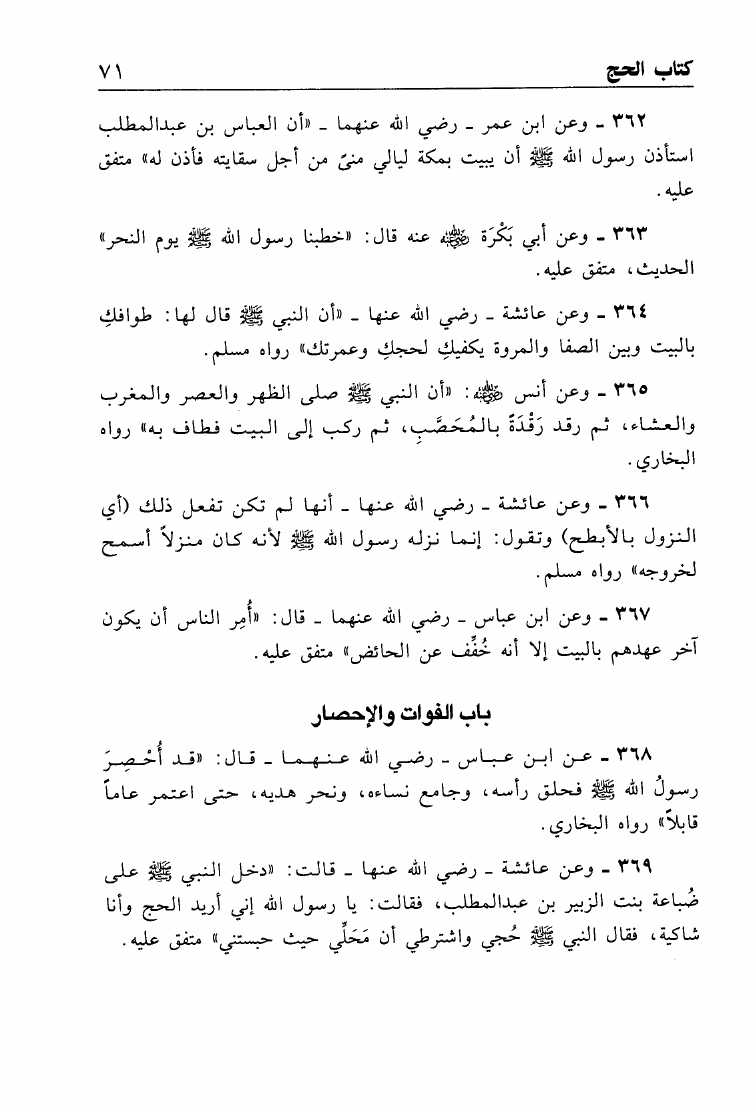 كتاب الحج ٧١
٣٦٢ ـ وعن ابن عمر ـ رضي الله عنهما ـ «أن العباس بن عبدالمطلب
استأذن رسول الله ﷺ أن يبيت بمكة ليالي منىً من أجل سقايته فأذن له» متفق
عليه.
٣٦٣ ـ وعن أبي بَكْرَة رضي الله عنه قال: «خطبنا رسول الله ﷺ يوم النحر»
الحديث، متفق عليه.
٣٦٤ ـ وعن عائشة ـ رضي الله عنها ـ «أن النبي ﷺ قال لها: طوافكِ
بالبيت وبين الصفا والمروة يكفيكِ لحجكِ وعمرتك» رواه مسلم.
٣٦٥ ـ وعن أنس رضي الله عنه: «أن النبي ﷺ صلى الظهر والعصر والمغرب
والعشاء، ثم رقد رَقْدَةً بالمُحَصَّبِ، ثم ركب إلى البيت فطاف به» رواه
البخاري.
٣٦٦ ـ وعن عائشة ـ رضي الله عنها ـ أنها لم تكن تفعل ذلك (أي
النزول بالأبطح) وتقول: إنما نزله رسول الله ﷺ لأنه كان منزلاً أسمح
لخروجه» رواه مسلم.
٣٦٧ ـ وعن ابن عباس ـ رضي الله عنهما ـ قال: «أُمِر الناس أن يكون
آخر عهدهم بالبيت إلا أنه خُفِّف عن الحائض» متفق عليه.
باب الفوات والإحصار
٣٦٨ ـ عن ابن عباس ـ رضي الله عنهما ـ قال: «قد أُحْصِرَ
رسولُ الله ﷺ فحلق رأسه، وجامع نساءه، ونحر هديه، حتى اعتمر عاماً
قابلاً» رواه البخاري.
٣٦٩ ـ وعن عائشة ـ رضي الله عنها ـ قالت: «دخل النبي ﷺ على
ضُباعة بنت الزبير بن عبدالمطلب، فقالت: يا رسول الله إني أريد الحج وأنا
شاكية، فقال النبي ﷺ حُجي واشترطي أن مَحَلِّي حيث حبستني» متفق عليه.